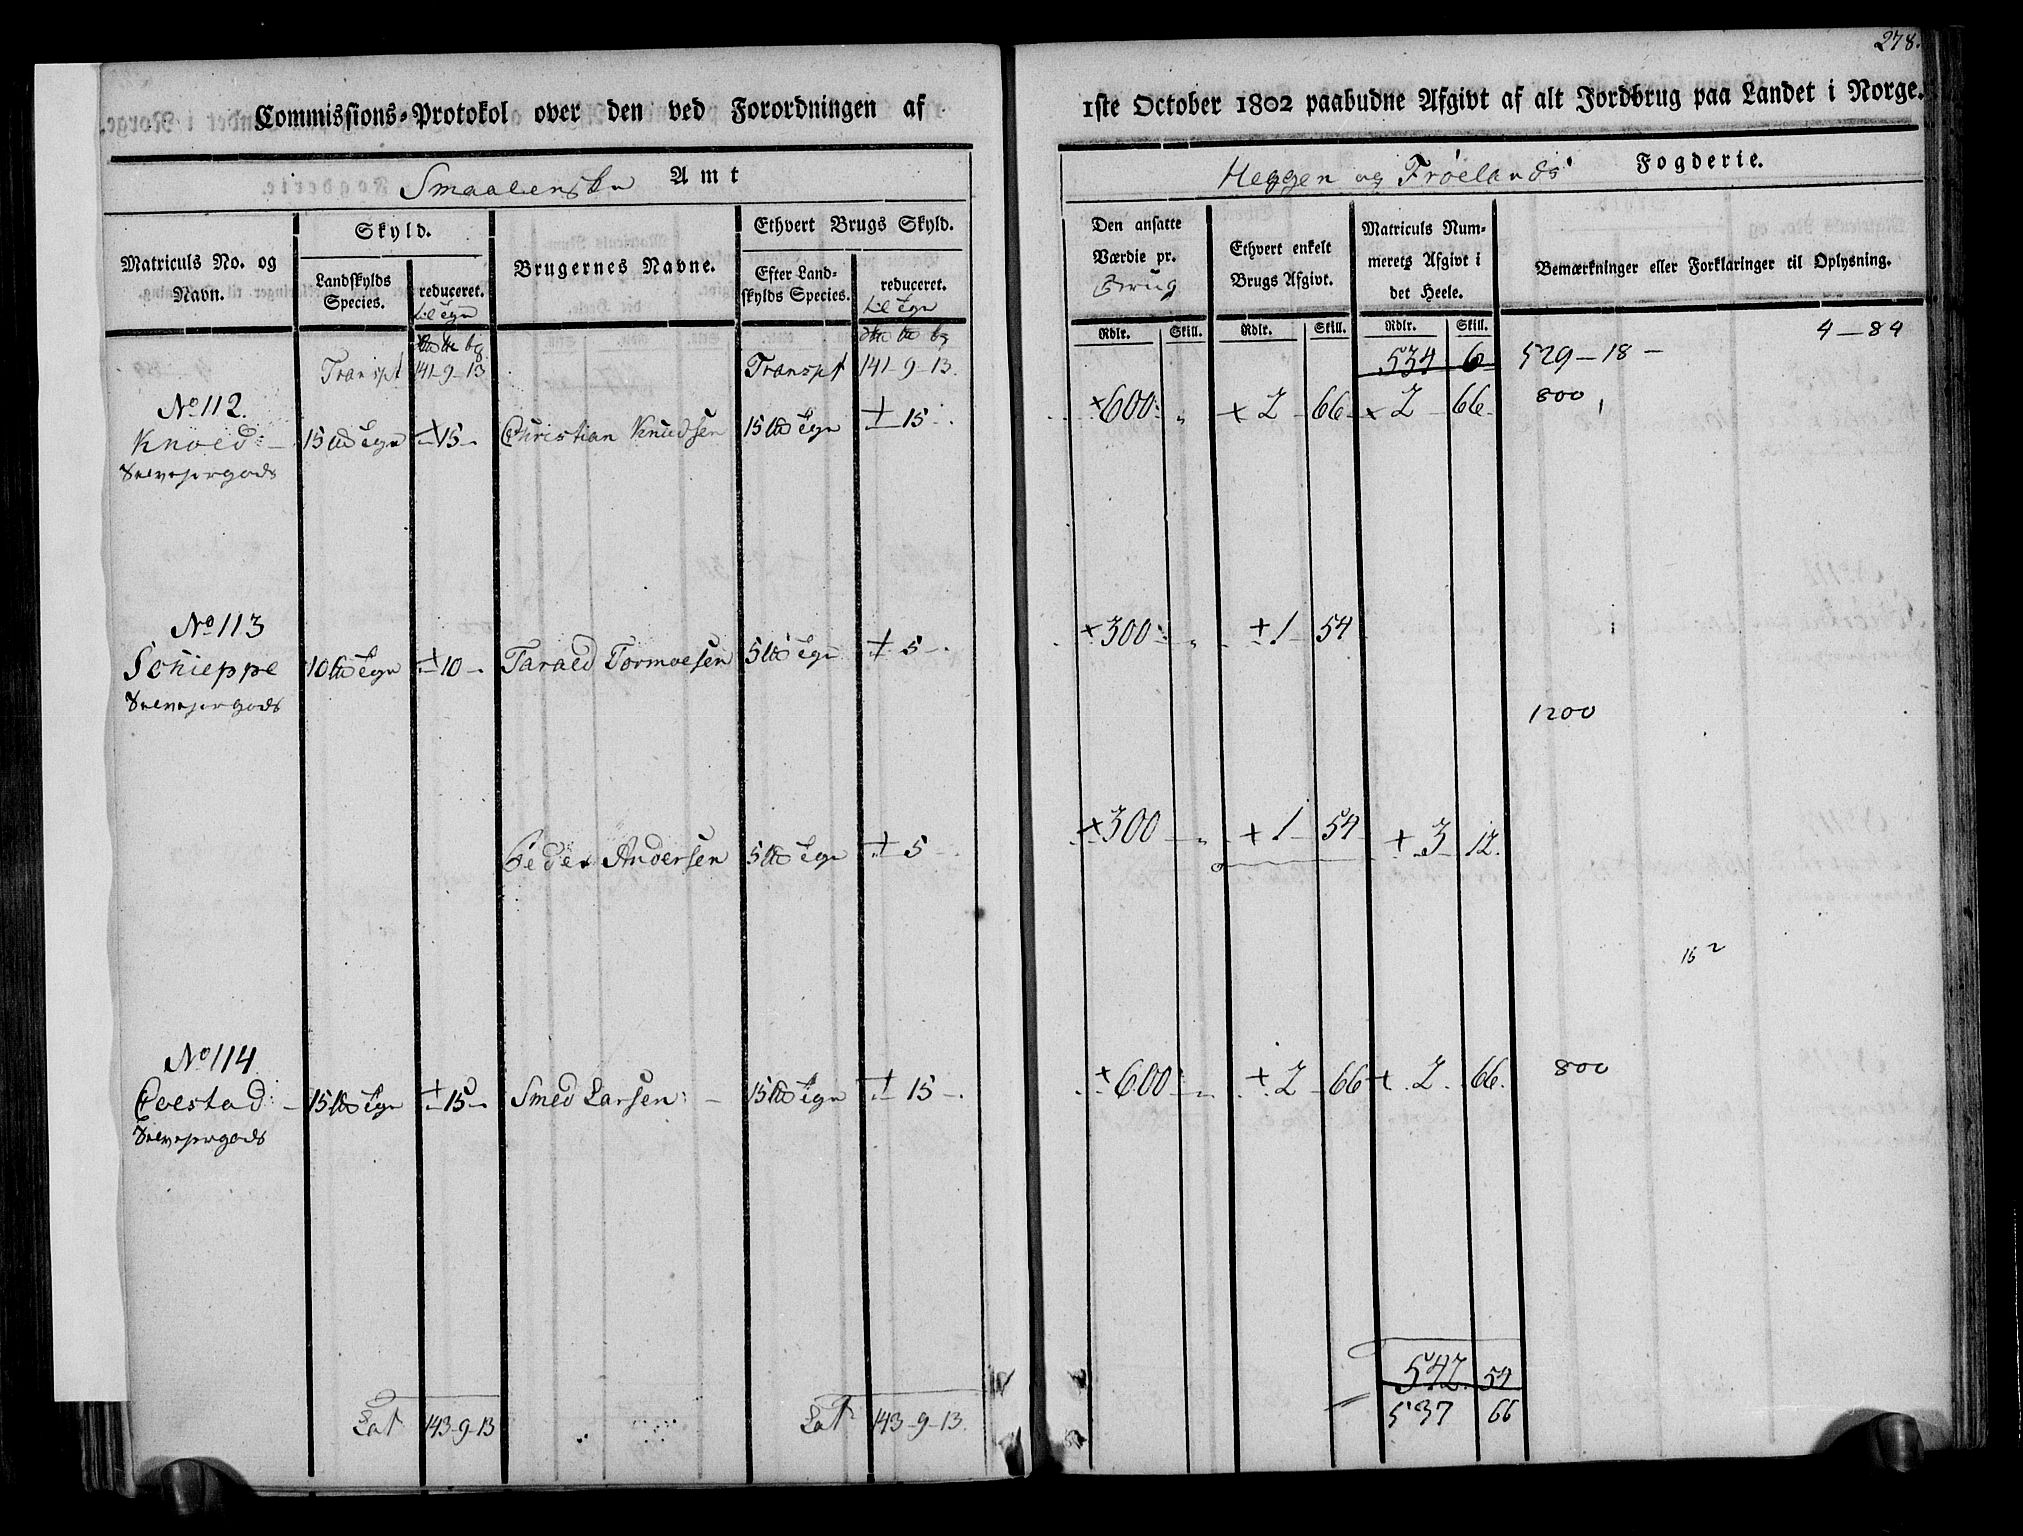 278.
Commissions-Protokol over den ved Forordningen af
1ste October 1802 paabudne Afgivt af alt Jordbrug paa Landet i Norge.
Smaalenske Amt
Heggen og Frøelands Fogderie.
Matriculs No. og Navn.
Skyld.
Landskylds Species.
reduceret.
til Tgn
Brugernes Navne.
Ethvert Brugs Skyld.
Efter Landskylds Species.
reduceret.
til Tgn
Den ansatte Værdie pr. Brug
Ethvert enkelt Brugs Afgivt.
Matriculs Nummerets Afgivt i det Heele.
Bemærkninger eller Forklaringer til Oplysning.
Rdlr. Skill. Rdlr. Skill. Rdlr. Skill.
4-84
Transpt 141-9-13 Transpt 141-9-13. 534 6 529-18-
No 112.
Knoed 15 Tgn 15 Christian Knudsen 15 Tgn 15 600 2 66 2 66 800
Selvejergods
No 113
Schieppe 10 Tgn 10 Taraed Tormoesen 5 Tgn 5 300 1 54
Selvejergods
1200
Peder Andersen 5 Tgn 5 300 1 54 3 12.
15 2
No 114
15 Tgn 15 Smed Larsen 15 Tgn 15 600 2 66 2 66. 800
Selvejergods
542 54
Lat 143-9-13 Lat 143-9-13. 537 66